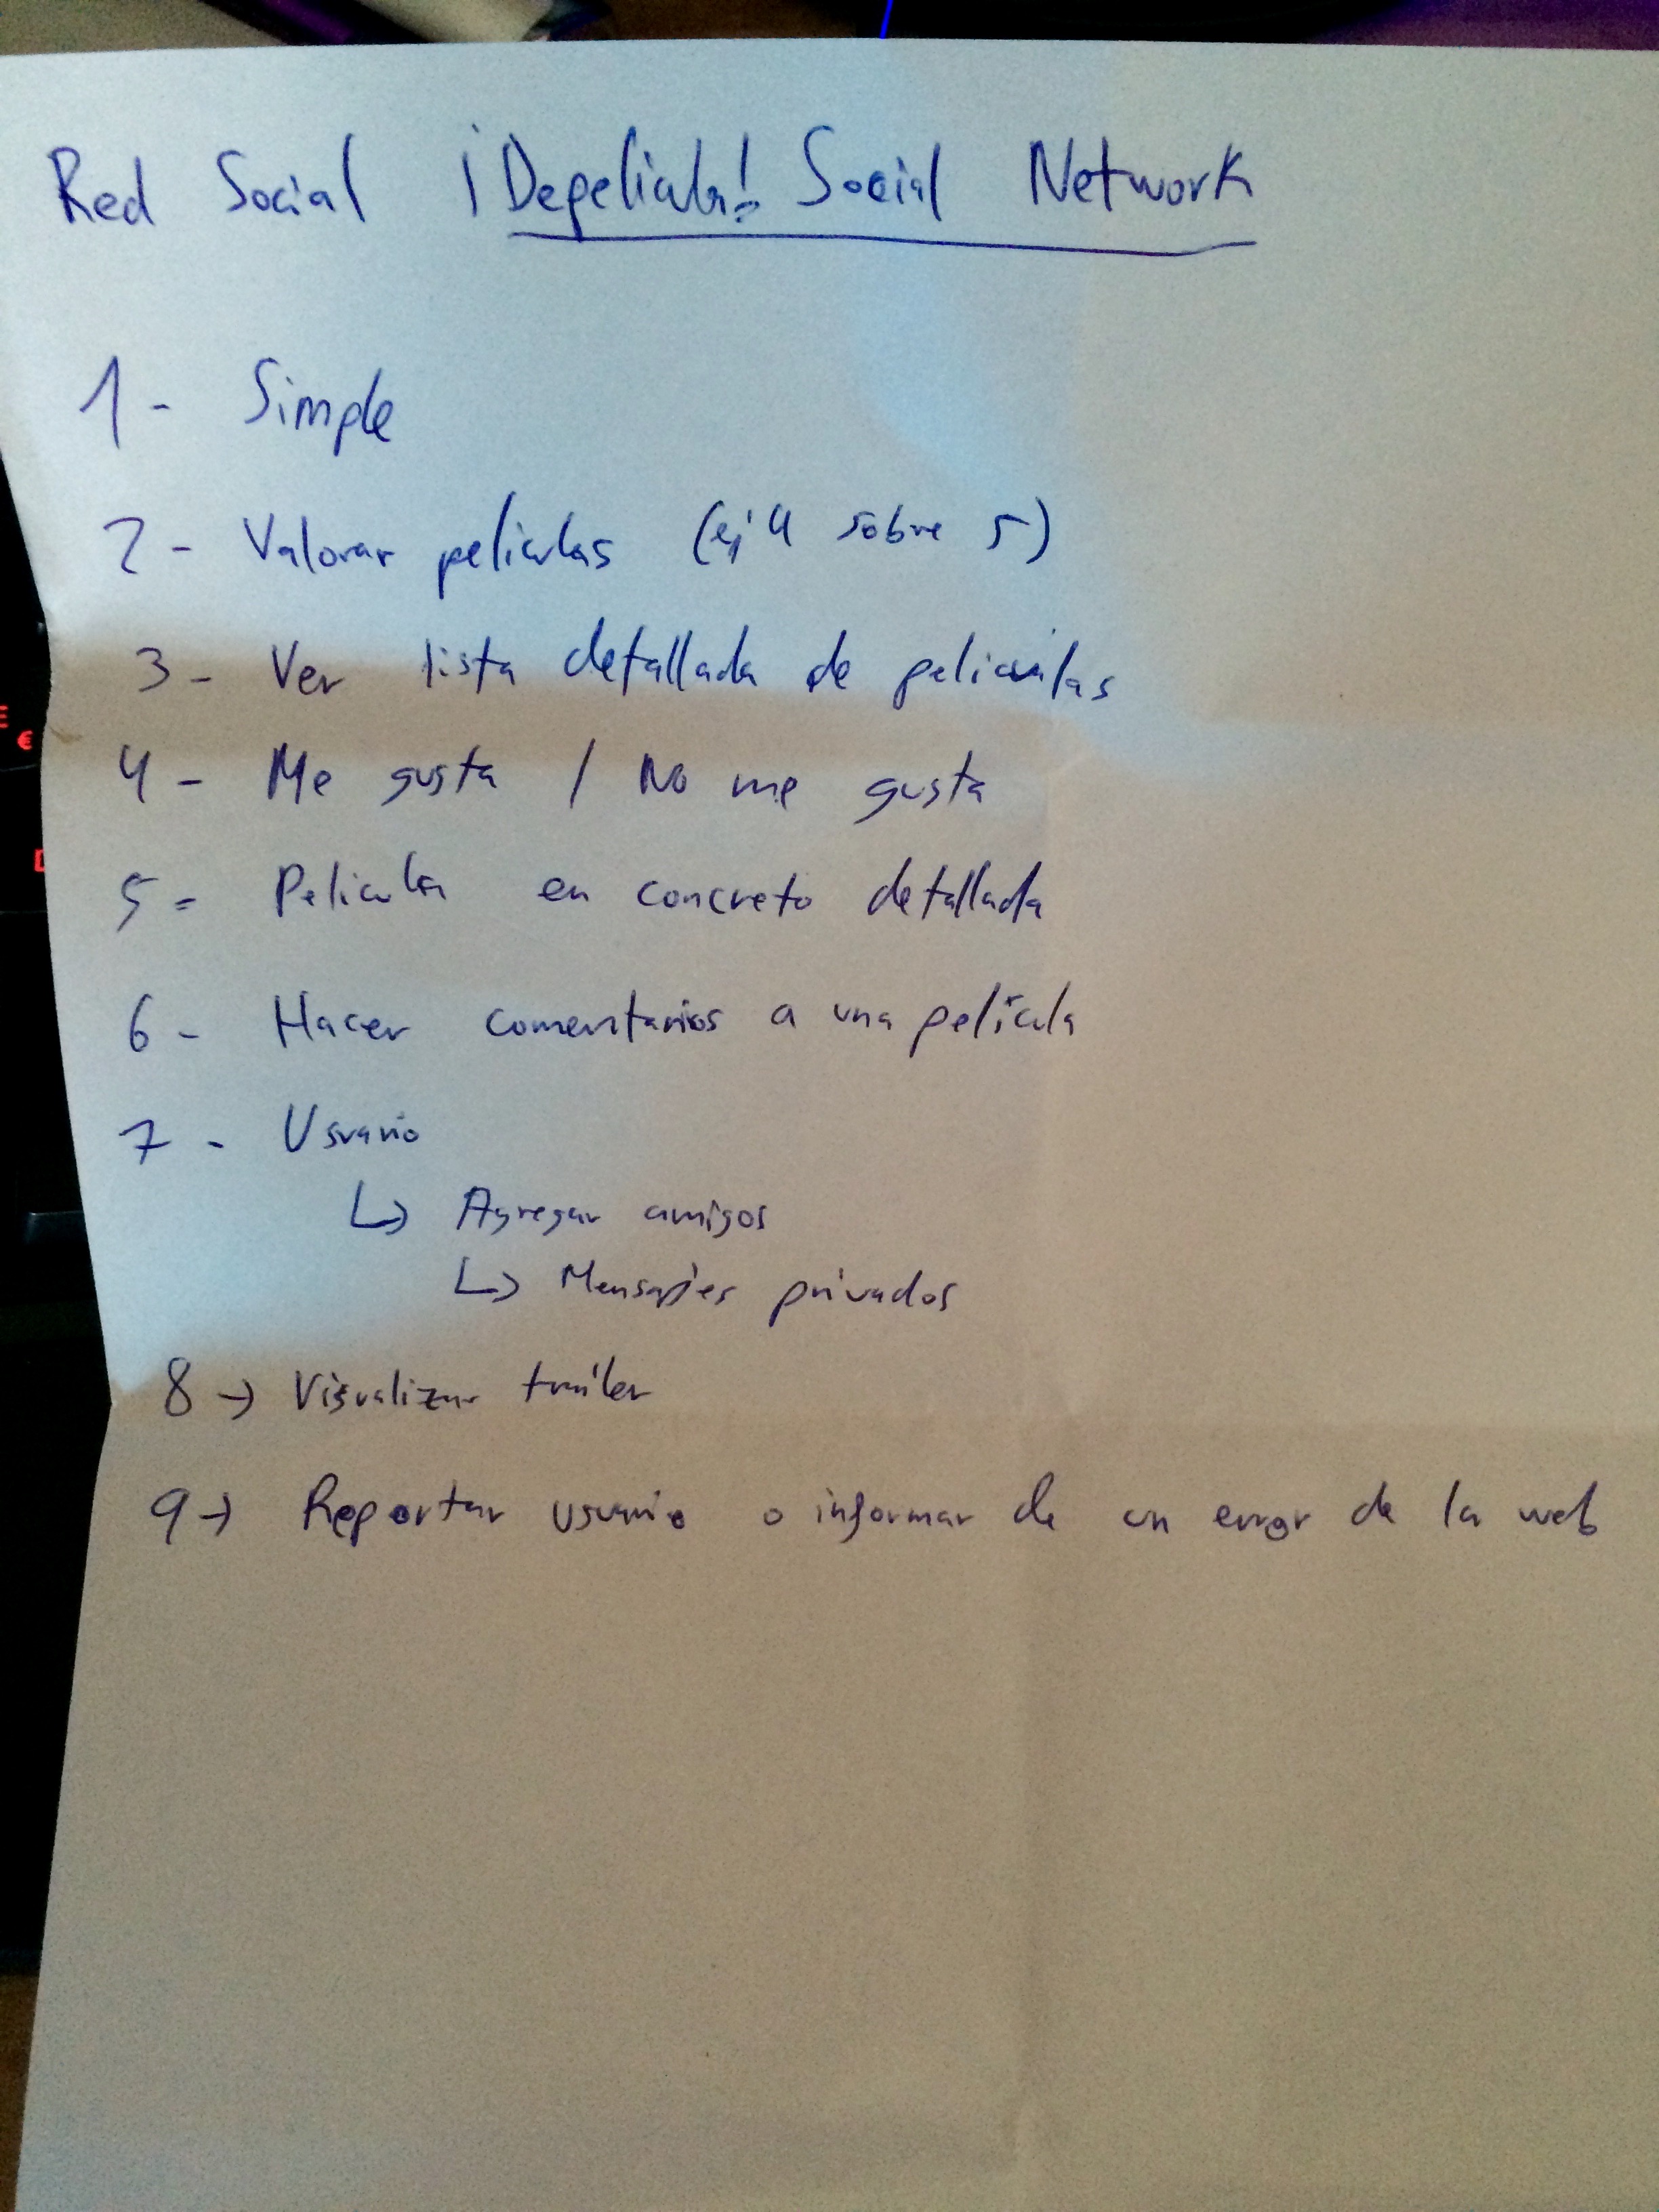 Red Social ¡Depelicula! Social Network
1- Simple
2- Valorar peliculas (ej 4 sobre 5)
3- Ver lista detallada de peliculas
4- Me gusta / No me gusta
5- Pelicula en concreto detallada
6- Hacer comentarios a una película
7- Usuario
↳ Agregar amigos
↳ Mensajes privados
8→ Visualizar trailer
9→ Reportar usuario o informar de un error de la web